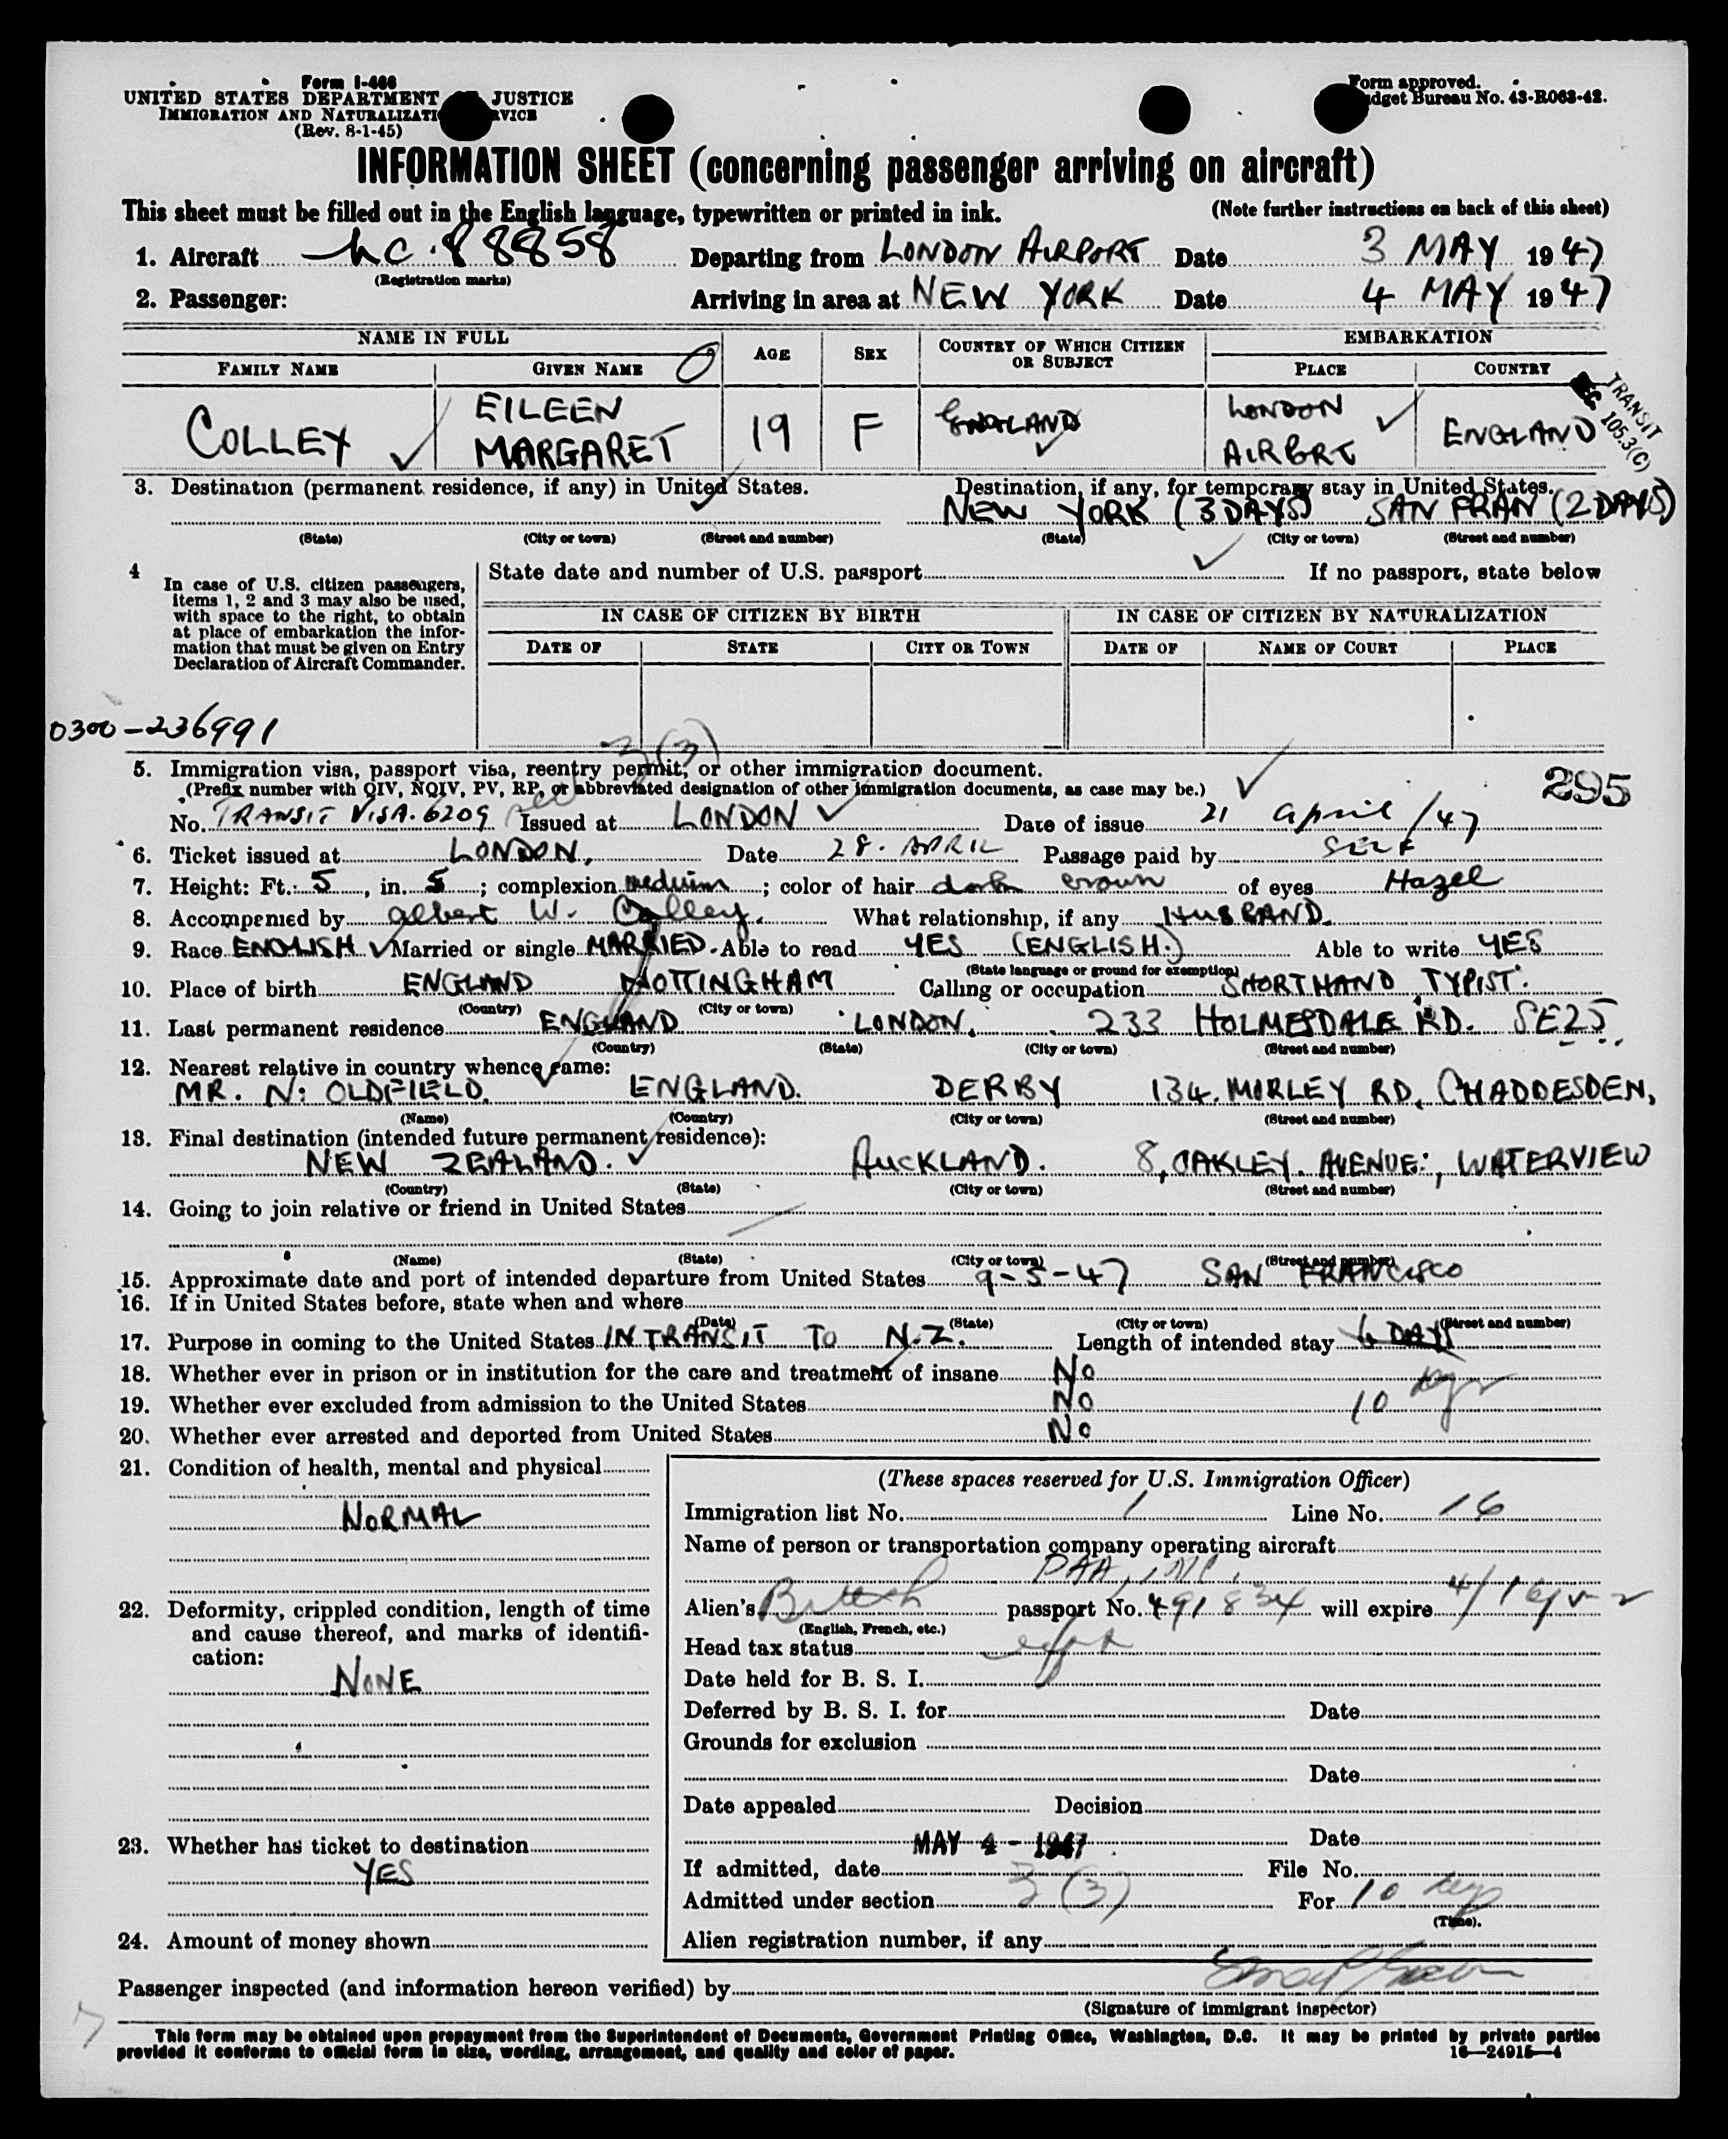 Form I-466
UNITED STATES DEPARTMENT OF JUSTICE
IMMIGRATION AND NATURALIZATION SERVICE
(Rev. 8-1-45)
Form approved.
Budget Bureau No. 43-R063-42.
INFORMATION SHEET (concerning passenger arriving on aircraft)
This sheet must be filled out in the English language, typewritten or printed in ink. (Note further instructions on back of this sheet)
1. Aircraft NC. 88858 Departing from LONDON AIRPORT Date 3 MAY 1947
(Registration marks)
2. Passenger: Arriving in area at NEW YORK Date 4 MAY 1947
NAME IN FULL AGE SEX COUNTRY OF WHICH CITIZEN OR SUBJECT EMBARKATION
FAMILY NAME GIVEN NAME PLACE COUNTRY
COLLEY EILEEN MARGARET 19 F ENGLAND LONDON AIRPORT ENGLAND
TRANSIT
105.3(C)
3. Destination (permanent residence, if any) in United States. Destination, if any, for temporary stay in United States.
NEW YORK (3 DAYS) SAN FRAN (2 DAYS)
(State) (City or town) (Street and number) (State) (City or town) (Street and number)
4 In case of U.S. citizen passengers, items 1, 2 and 3 may also be used, with space to the right, to obtain at place of embarkation the information that must be given on Entry Declaration of Aircraft Commander.
State date and number of U.S. passport If no passport, state below
IN CASE OF CITIZEN BY BIRTH IN CASE OF CITIZEN BY NATURALIZATION
DATE OF STATE CITY OR TOWN DATE OF NAME OF COURT PLACE
0300-236991
3(3)
5. Immigration visa, passport visa, reentry permit, or other immigration document.
(Prefix number with QIV, NQIV, PV, RP, or abbreviated designation of other immigration documents, as case may be.) 295
No. TRANSIT VISA. 6209 Issued at LONDON Date of issue 21 April /47
6. Ticket issued at LONDON. Date 28. APRIL Passage paid by SELF
7. Height: Ft. 5, in. 5; complexion medium; color of hair dark brown of eyes Hazel
8. Accompanied by Albert W. Colley. What relationship, if any HUSBAND.
9. Race ENGLISH Married or single MARRIED. Able to read YES (ENGLISH.) Able to write YES
(State language or ground for exemption)
10. Place of birth ENGLAND NOTTINGHAM Calling or occupation SHORTHAND TYPIST.
(Country) (City or town)
11. Last permanent residence ENGLAND LONDON. 233 HOLMESDALE RD. SE25
(Country) (State) (City or town) (Street and number)
12. Nearest relative in country whence came:
MR. N. OLDFIELD. ENGLAND. DERBY 134. MORLEY RD, CHADDESDEN,
(Name) (Country) (City or town) (Street and number)
13. Final destination (intended future permanent residence):
NEW ZEALAND. AUCKLAND. 8, OAKLEY. AVENUE, WATERVIEW
(Country) (State) (City or town) (Street and number)
14. Going to join relative or friend in United States
(Name) (State) (City or town) (Street and number)
15. Approximate date and port of intended departure from United States 9-5-47 SAN FRANCISCO
16. If in United States before, state when and where
(Date) (State) (City or town) (Street and number)
17. Purpose in coming to the United States IN TRANSIT TO N.Z. Length of intended stay 6 DAYS
18. Whether ever in prison or in institution for the care and treatment of insane No
19. Whether ever excluded from admission to the United States No 10 days
20. Whether ever arrested and deported from United States No
21. Condition of health, mental and physical
NORMAL
22. Deformity, crippled condition, length of time and cause thereof, and marks of identification:
NONE
23. Whether has ticket to destination
YES
24. Amount of money shown
(These spaces reserved for U.S. Immigration Officer)
Immigration list No. 1 Line No. 16
Name of person or transportation company operating aircraft
PAA
Alien's British passport No. 491834 will expire
(English, French, etc.)
Head tax status
Date held for B. S. I.
Deferred by B. S. I. for Date
Grounds for exclusion
Date
Date appealed Decision
Date
MAY 4 - 1947
If admitted, date File No.
Admitted under section 3(3) For 10 days
(Time).
Alien registration number, if any
Passenger inspected (and information hereon verified) by
(Signature of immigrant inspector)
This form may be obtained upon prepayment from the Superintendent of Documents, Government Printing Office, Washington, D.C. It may be printed by private parties
provided it conforms to official form in size, wording, arrangement, and quality and color of paper. 16—24915—4